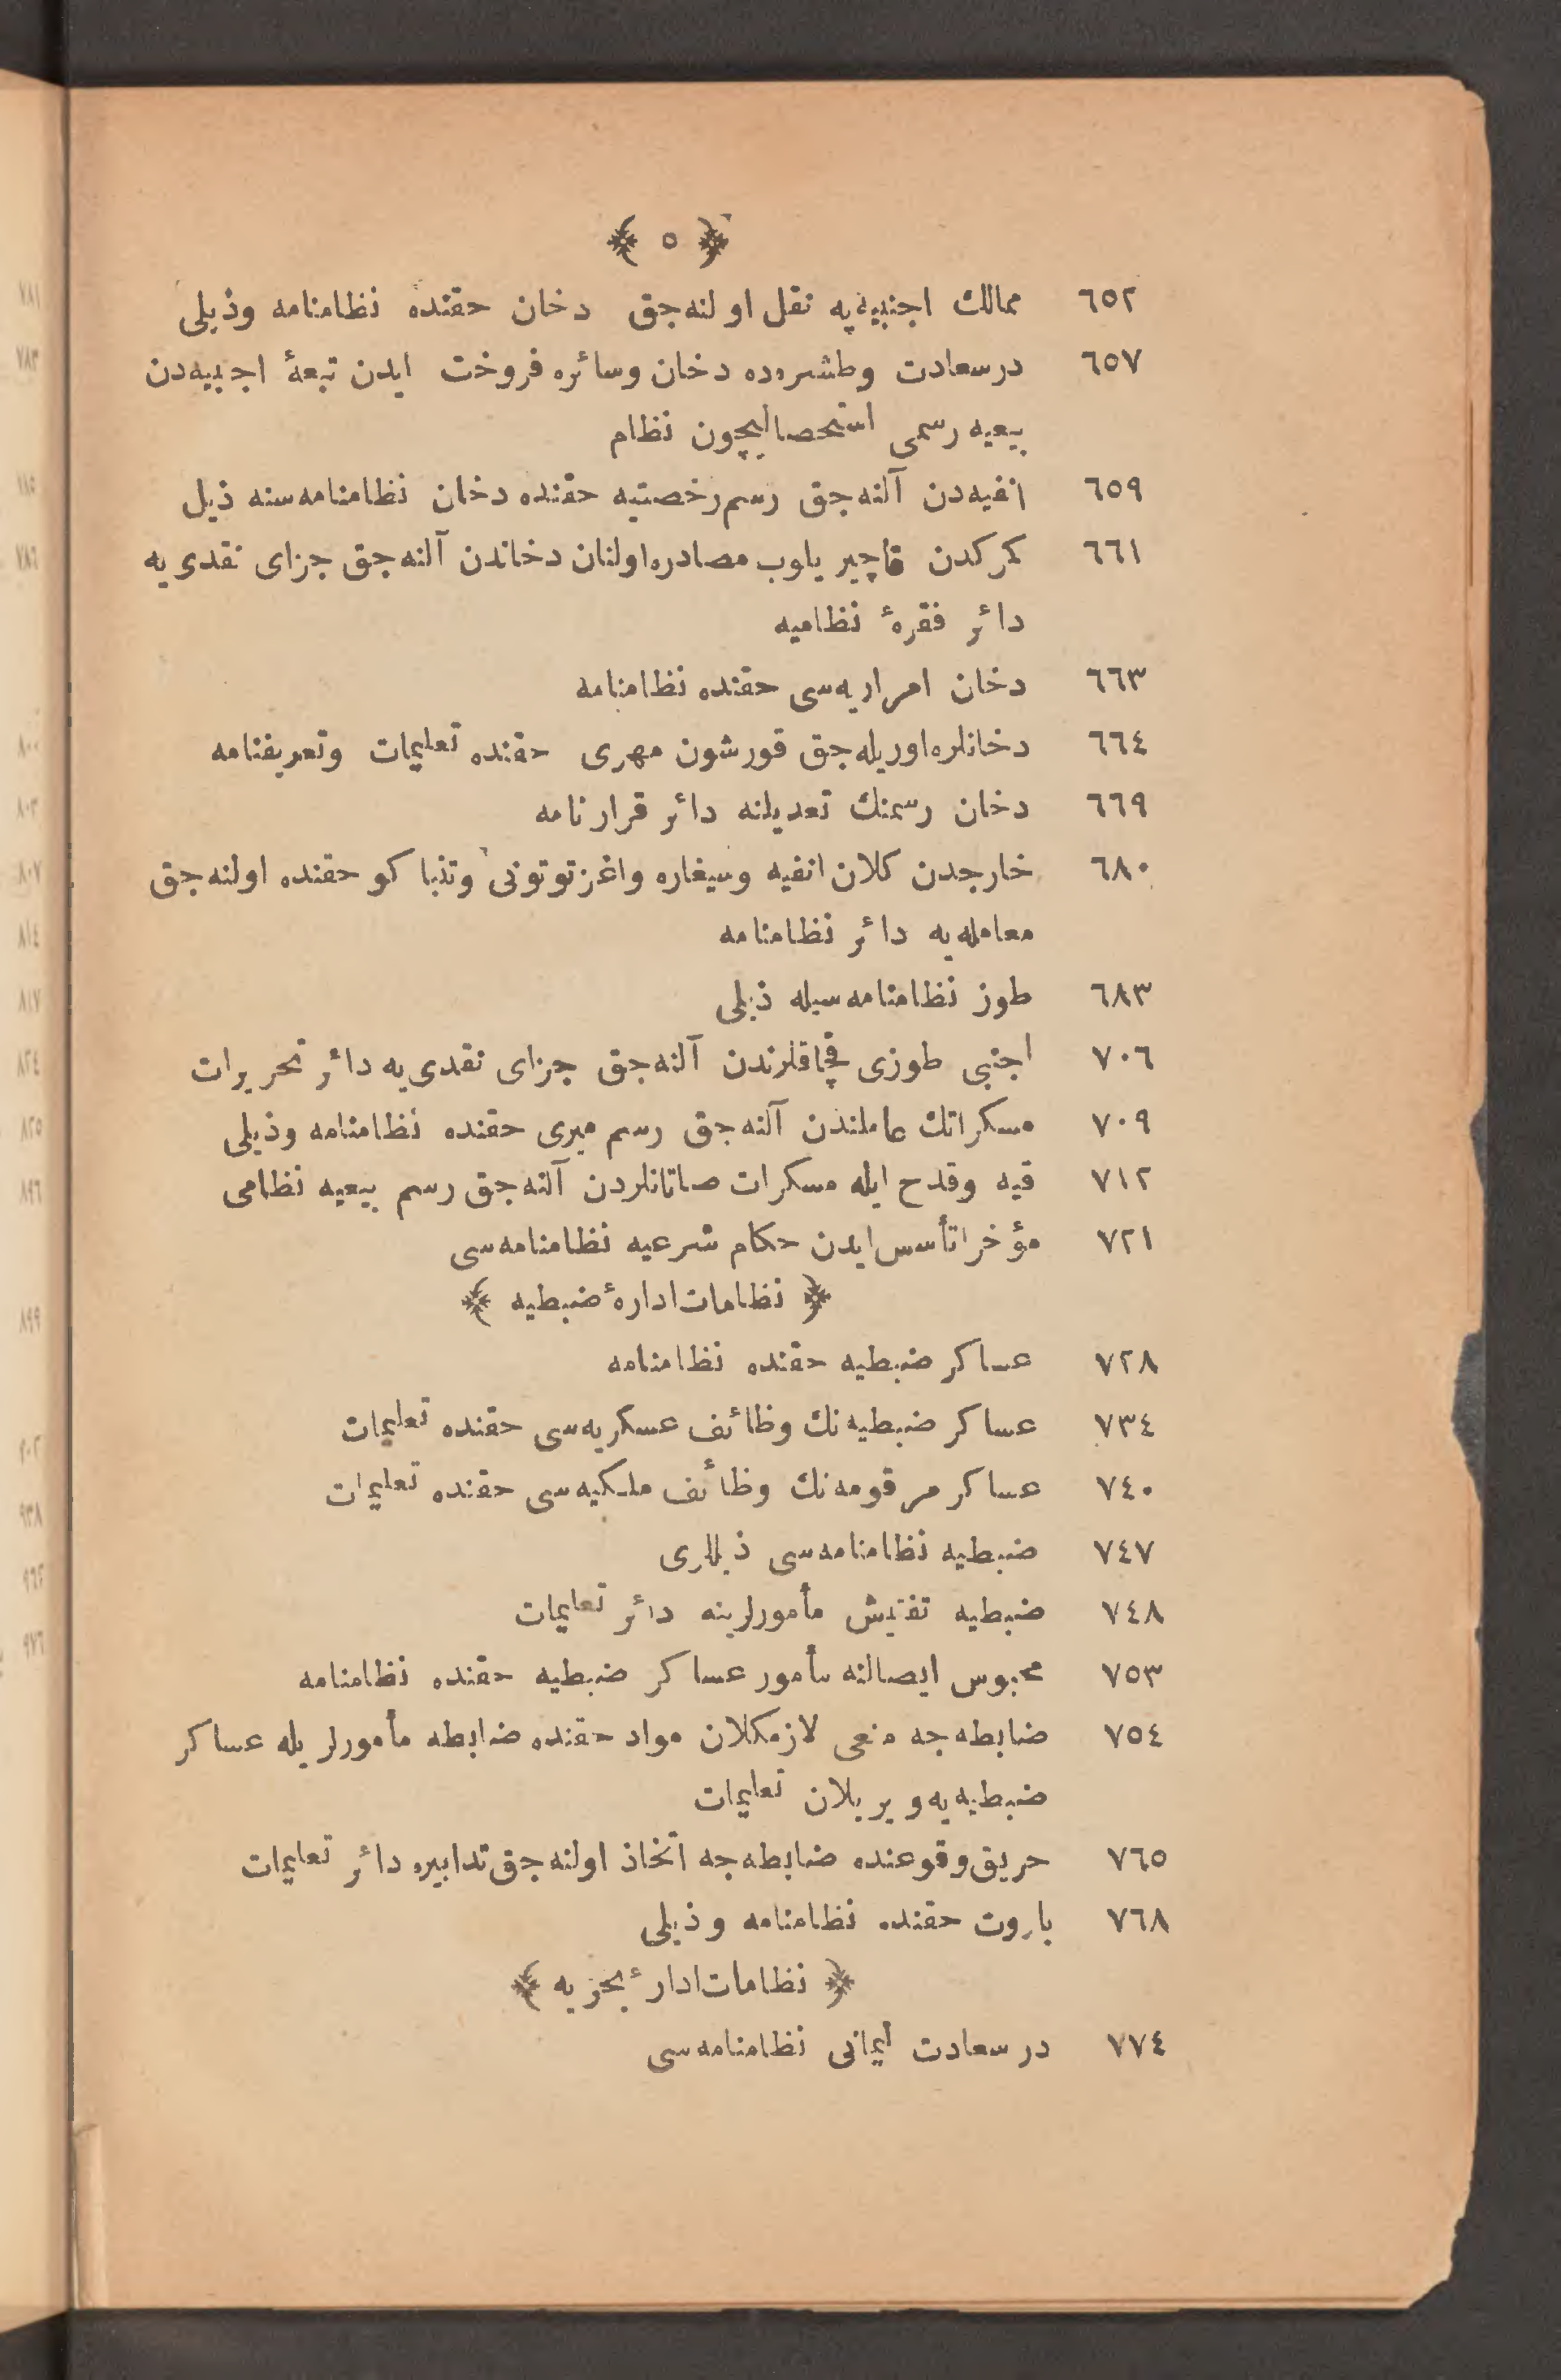 ﴿ ٥ ﴾
٦٥٢ ممالك اجنبيه‌يه نقل اولنه‌جق دخان حقنده نظامنامه وذيلى
٦٥٧ درسعادت وطشره‌ده دخان وسائره فروخت ايدن تبعهٔ اجنبيه‌دن
بيعيه رسمى استحصاليچون نظام
٦٥٩ انفيه‌دن آلنه‌جق رسم رخصتيه حقنده دخان نظامنامه‌سنه ذيل
٦٦١ كمركدن قاچيريلوب مصادره اولنان دخاندن آلنه‌جق جزاى نقدى‌يه
دائر فقرهٔ نظاميه
٦٦٣ دخان امراريه‌سى حقنده نظامنامه
٦٦٤ دخانلره اوريله‌جق قورشون مهرى حقنده تعليمات وتعريفنامه
٦٦٩ دخان رسمنك تعديلنه دائر قرارنامه
٦٨٠ خارجدن كلان انفيه وسيغاره واغزتوتونى وتنباكو حقنده اولنه‌جق
معامله‌يه دائر نظامنامه
٦٨٣ طوز نظامنامه‌سيله ذيلى
٧٠٦ اجنبى طوزى قچاقلرندن آلنه‌جق جزاى نقدى‌يه دائر تحريرات
٧٠٩ مسكراتك عاملندن آلنه‌جق رسم ميرى حقنده نظامنامه وذيلى
٧١٢ قيه وقدح ايله مسكرات صاتانلردن آلنه‌جق رسم بيعيه نظامى
٧٢١ مؤخراتأسس ايدن حكام شرعيه نظامنامه‌سى
﴿ نظامات ادارهٔ ضبطيه ﴾
٧٢٨ عساكر ضبطيه حقنده نظامنامه
٧٣٤ عساكر ضبطيه‌نك وظائف عسكريه‌سى حقنده تعليمات
٧٤٠ عساكر مرقومه‌نك وظائف ملكيه‌سى حقنده تعليمات
٧٤٧ ضبطيه نظامنامه‌سى ذيللرى
٧٤٨ ضبطيه تفتيش مأمورلرينه دائر تعليمات
٧٥٣ محبوس ايصالنه مأمور عساكر ضبطيه حقنده نظامنامه
٧٥٤ ضابطه‌جه منعى لازمكلان مواد حقنده ضابطه مأمورلريله عساكر
ضبطيه‌يه ويريلان تعليمات
٧٦٥ حريق وقوعنده ضابطه‌جه اتخاذ اولنه‌جق تدابيره دائر تعليمات
٧٦٨ باروت حقنده نظامنامه وذيلى
﴿ نظامات ادارهٔ بحريه ﴾
٧٧٤ درسعادت ليمانى نظامنامه‌سى